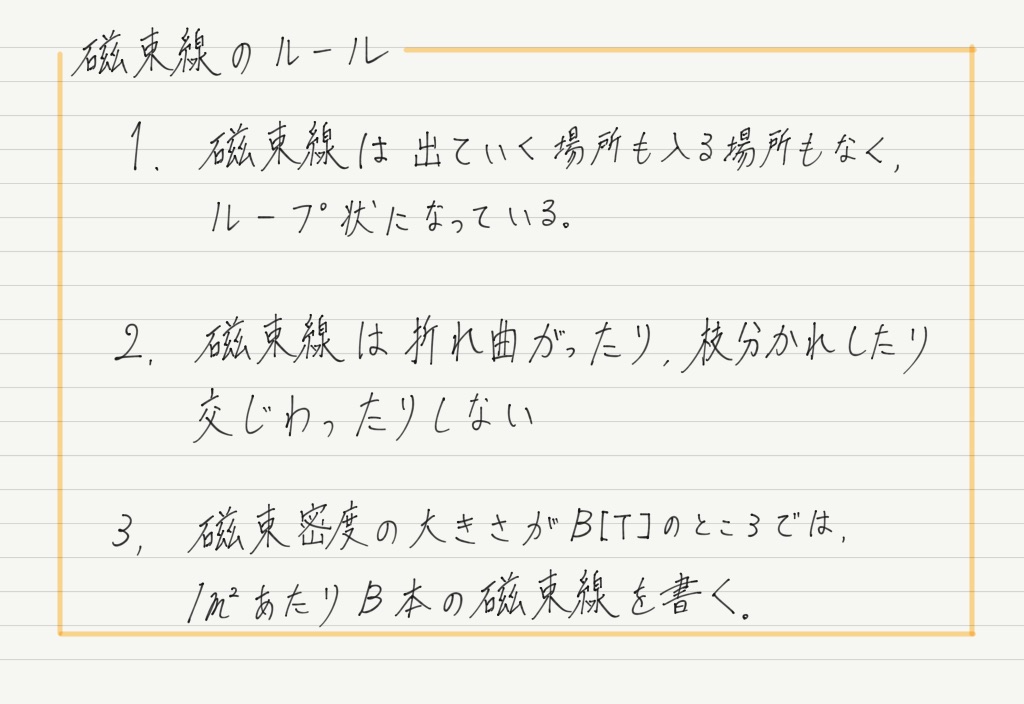 磁束線のルール
1. 磁束線は出ていく場所も入る場所もなく,
ループ状になっている。
2. 磁束線は折れ曲がったり, 枝分かれしたり
交じわったりしない
3, 磁束密度の大きさがB[T]のところでは,
1m²あたりB本の磁束線を書く。